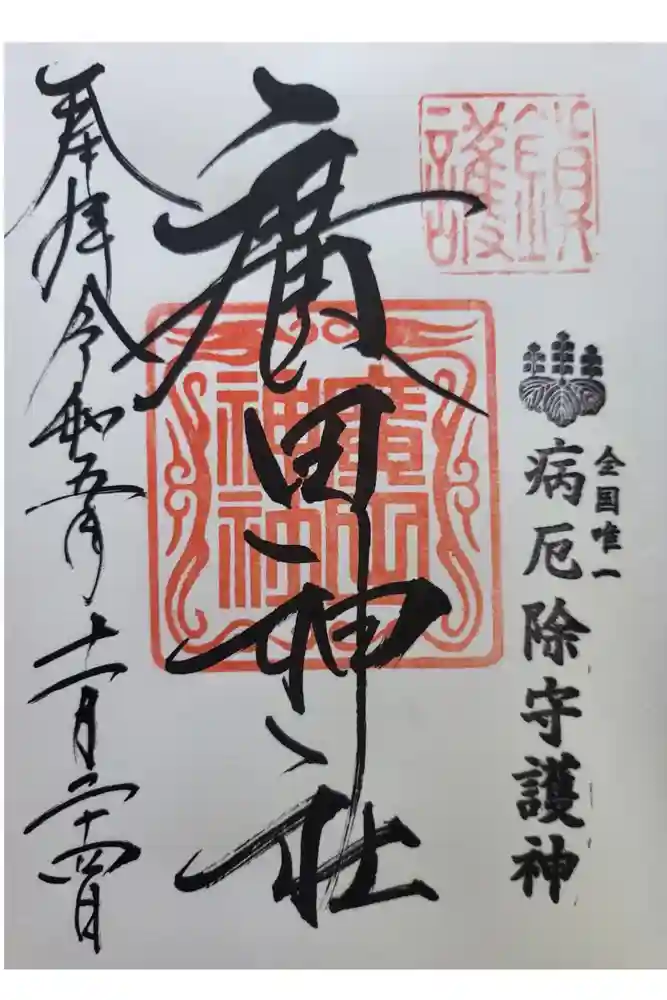 鎮護
全国唯一
病厄除守護神
廣田神社
廣田神社
奉拝令和五年十一月二十四日